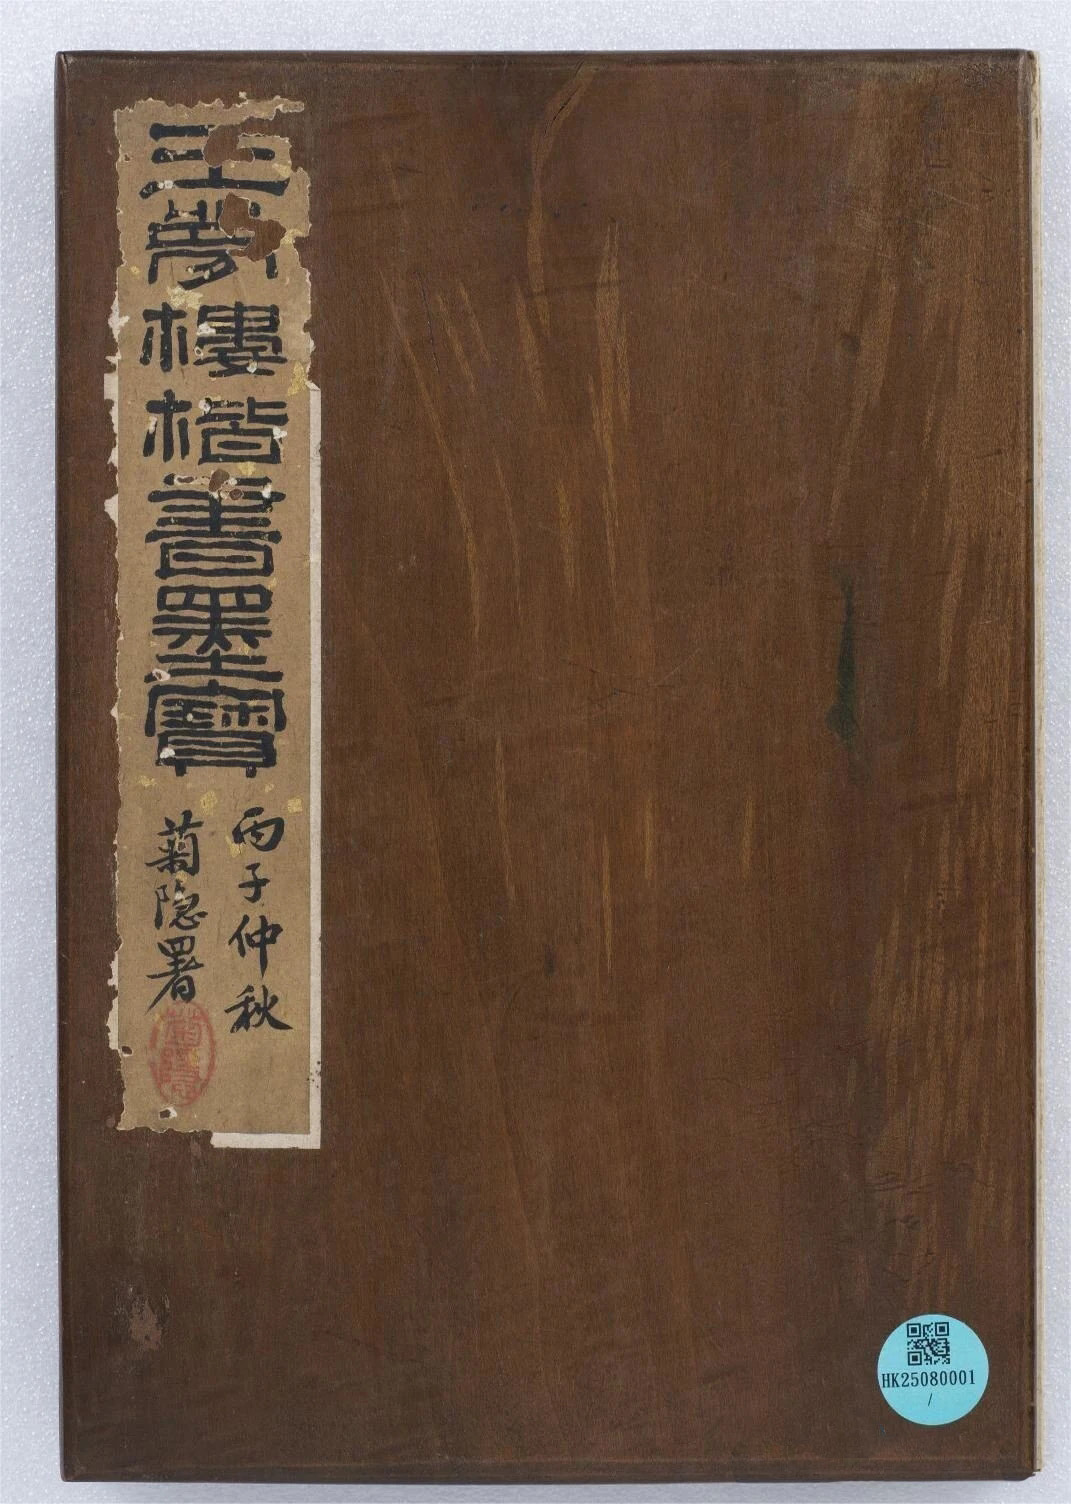 王夢樓楷書墨寶
丙子仲秋
菊隐署
菊隱
HK25080001
/